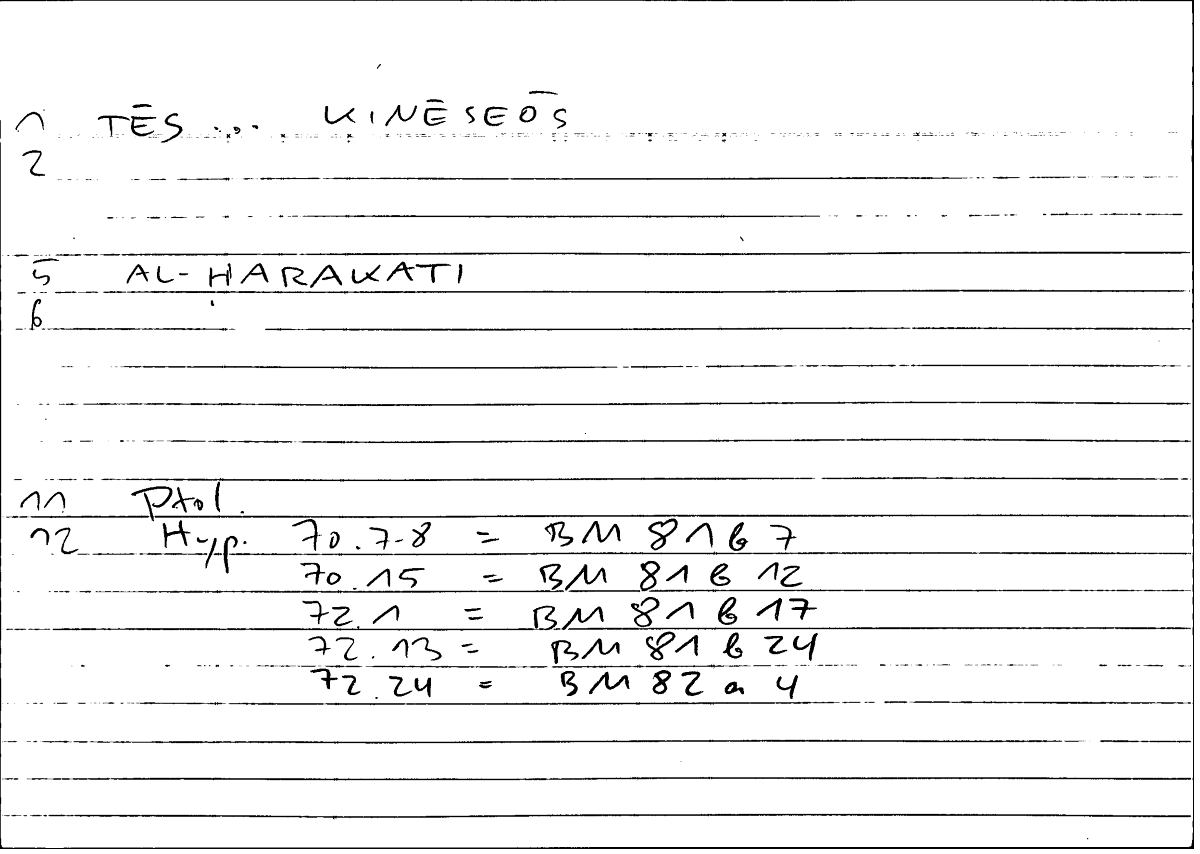 1 TĒS ... KINĒSEŌS
2
5 AL-ḤARAKATI
6
11 Ptol.
12 Hyp. 70.7-8 = BM 81 b 7
70.15 = BM 81 b 12
72.1 = BM 81 b 17
72.13 = BM 81 b 24
72.24 = BM 82 a 4